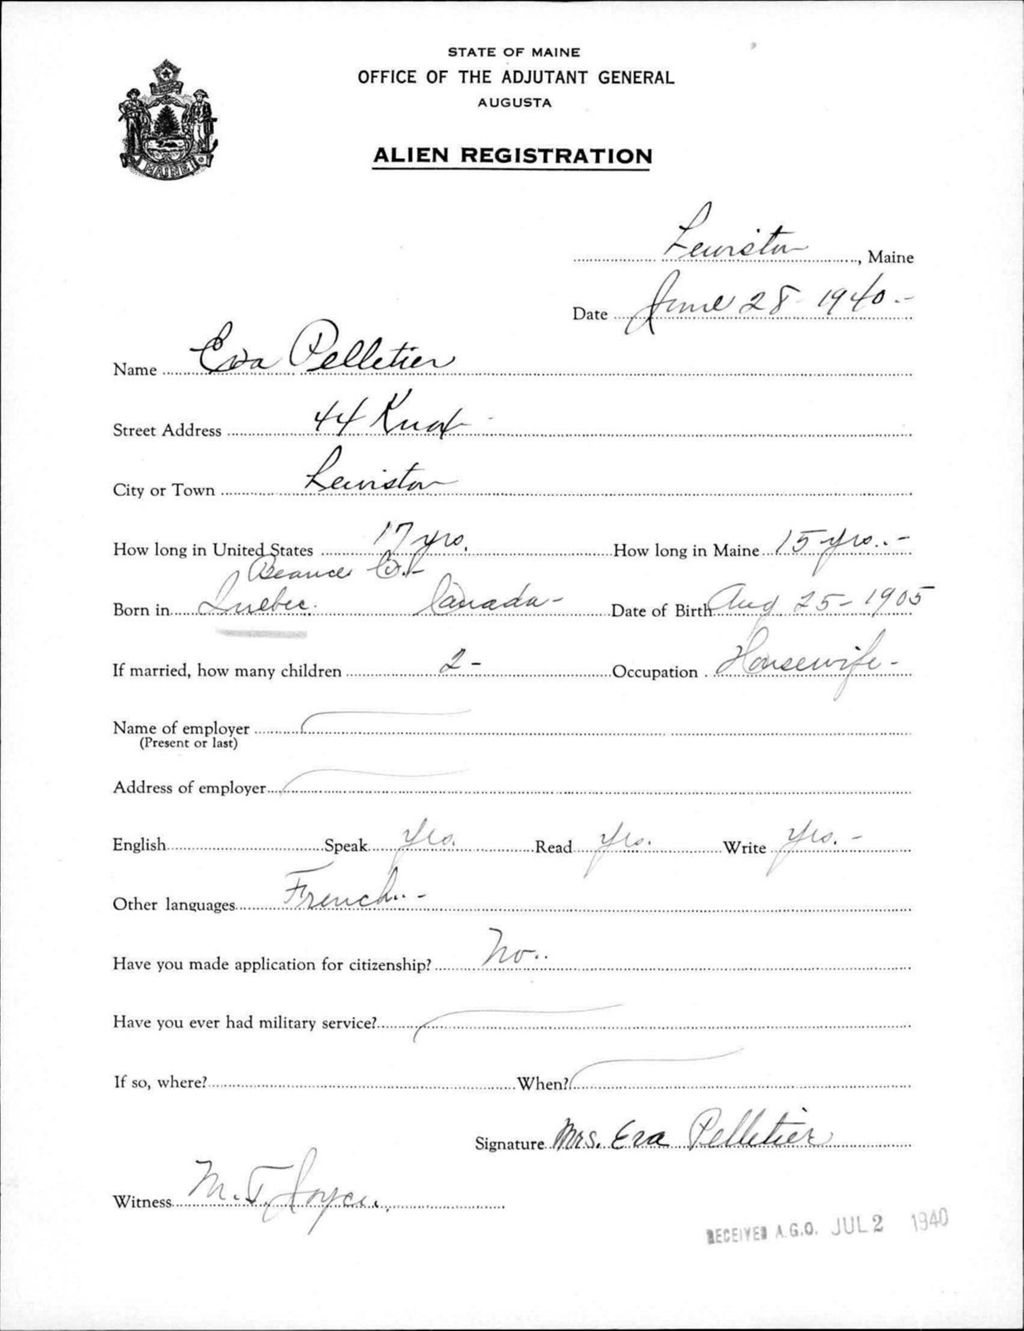 STATE OF MAINE
OFFICE OF THE ADJUTANT GENERAL
AUGUSTA
ALIEN REGISTRATION
MAINE
Lewiston, Maine
Date June 28 1940.-
Name Eva Pelletier
Street Address 44 Knox
City or Town Lewiston
How long in United States 17 yrs. How long in Maine 15 yrs..-
Beauce Co.-
Born in Quebec. Canada- Date of Birth Aug 25-1905
If married, how many children 2- Occupation Housewife-
Name of employer
(Present or last)
Address of employer
English Speak Yes. Read Yes. Write Yes.-
Other languages French.-
Have you made application for citizenship? No..
Have you ever had military service?
If so, where? When?
Signature Mrs. Eva Pelletier
Witness M. T. Joyce
RECEIVED A.G.O. JUL 2 1940